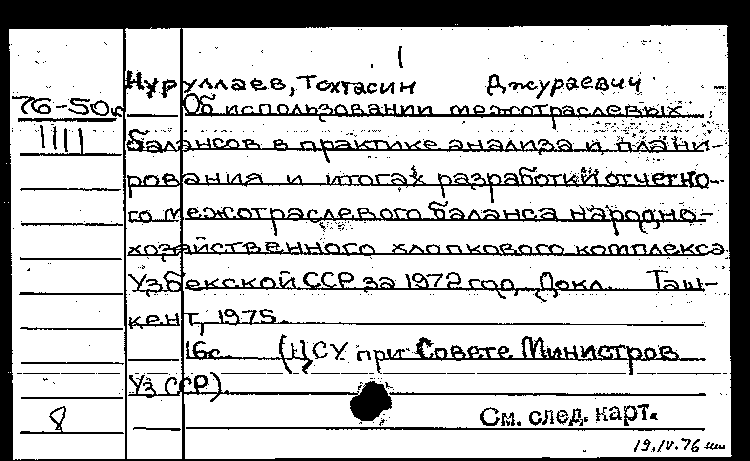 Нуруллаев, Тохтасин Джураевич
76-50
Об использовании межотраслевых
балансов в практике анализа и плани-
рования и итогах разработки отчетно-
го межотраслевого баланса народно-
хозяйственного хлопкового комплекса
Узбекской ССР за 1972 год. Докл. Таш-
кент, 1975.
16с. (ЦСУ при Совете Министров
Уз ССР).
8
См. след. карт.
19.IV.76